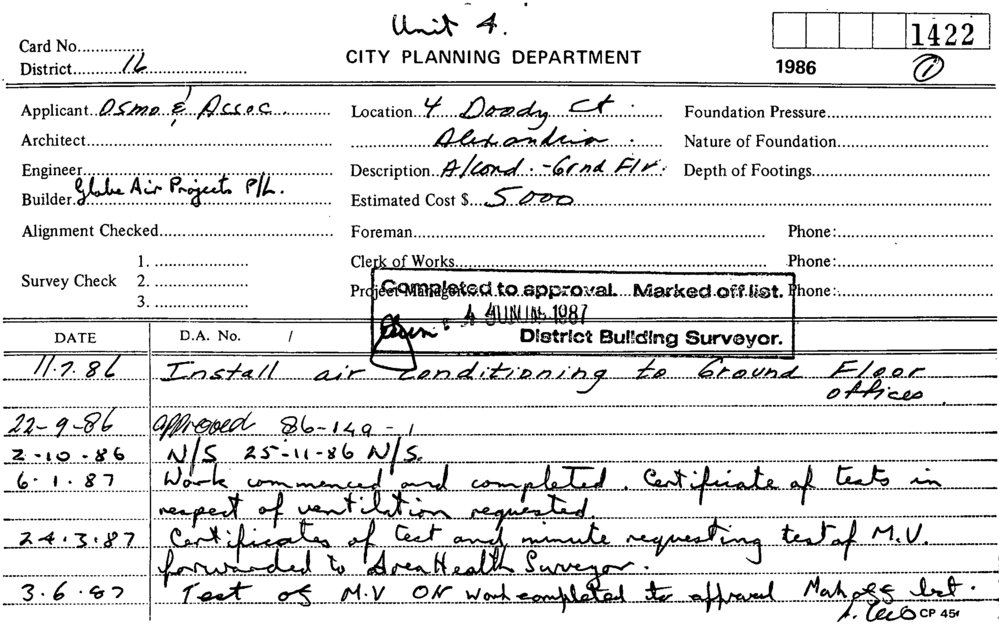 Unit 4.
Card No............... CITY PLANNING DEPARTMENT 1422
District 16 1986 1
Applicant Osmo & Assoc Location 4 Doody Ct. Foundation Pressure
Architect Alexandria. Nature of Foundation
Engineer Description A/Cond.-Grnd Flr. Depth of Footings
Builder Globe Air Projects P/L. Estimated Cost $ 5.000
Alignment Checked Foreman Phone:
1. Clerk of Works Phone:
Survey Check 2. Project Manager Phone:
3.
Completed to approval. Marked off list.
4 JUN 1987
District Building Surveyor.
DATE D.A. No. /
11.7.86 Install air conditioning to Ground Floor
offices.
22-9-86 approved 86-149-1
2-10-86 N/S 25-11-86 N/S.
6.1.87 Work commenced and completed. Certificate of tests in
respect of ventilation requested.
24.3.87 Certificates of test and minute requesting test of M.V.
forwarded to Area Health Surveyor.
3.6.87 Test of M.V OK work completed to approval Mark off list.
CP 45